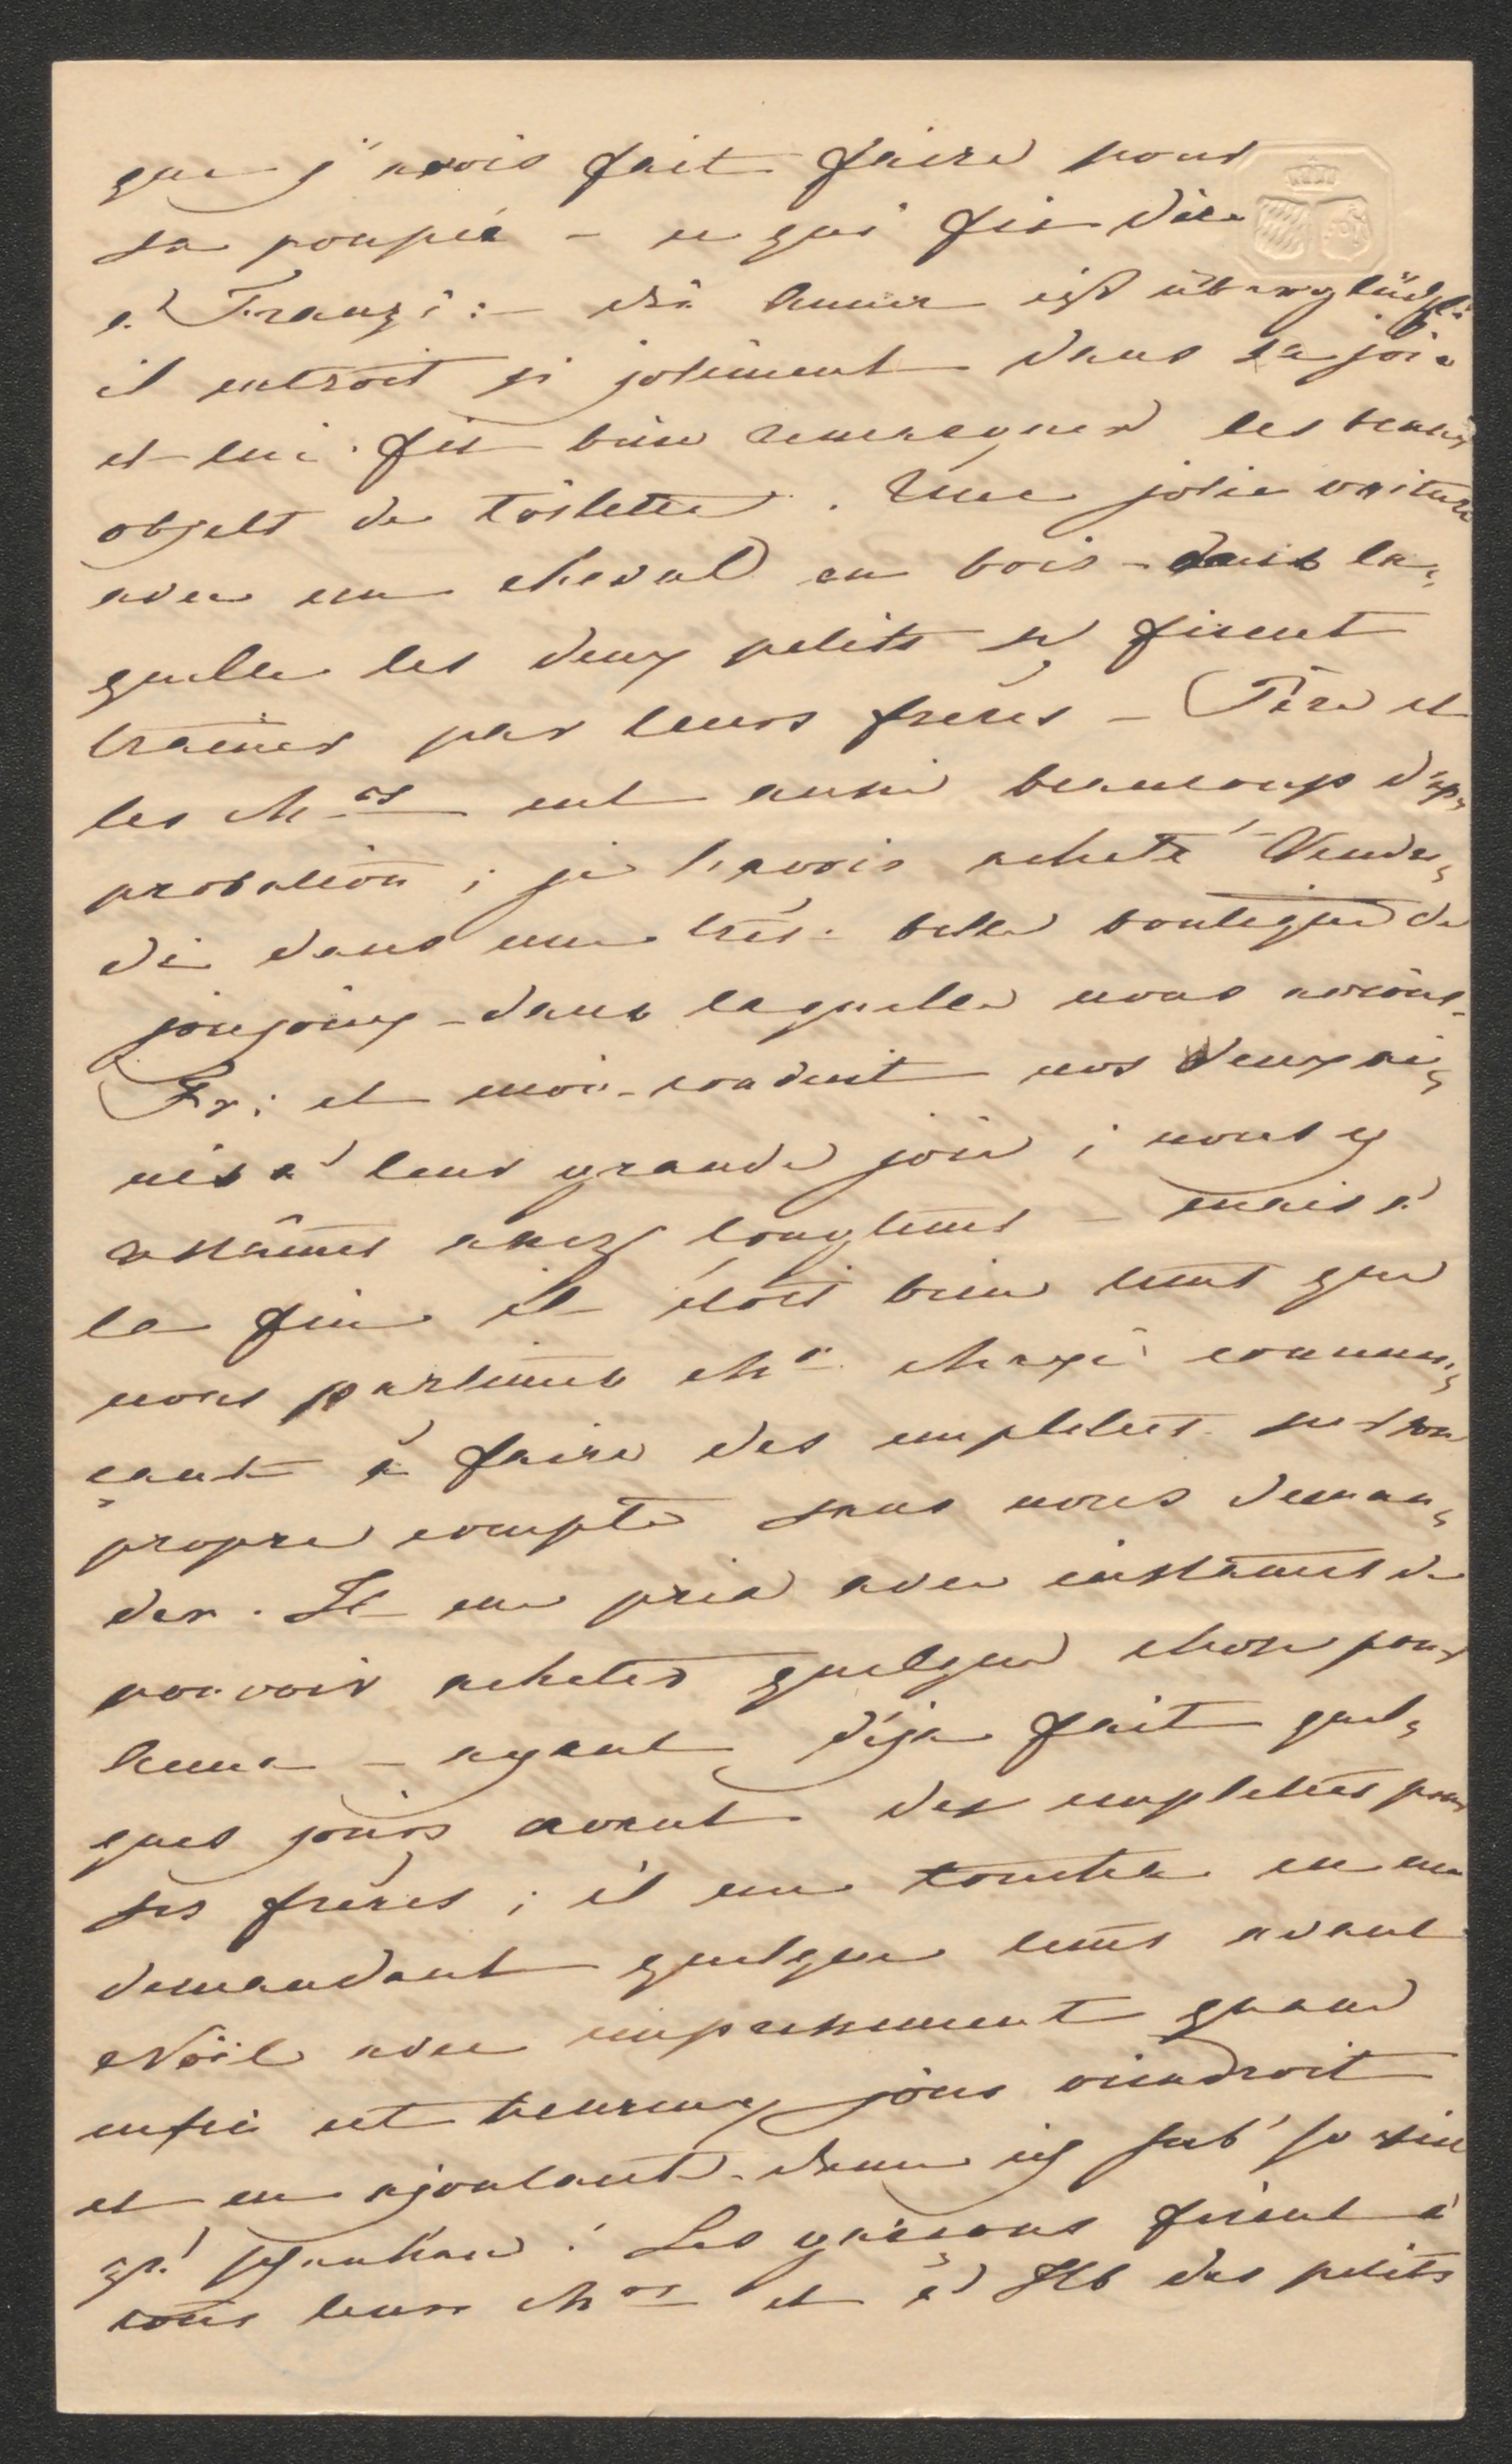 que j'avois fait faire pour
sa poupée - ce qui fit dire
à Franzi: - die Anna ist überglücklich
il entroit si joliment dans sa joie
et lui fit bien remarquer les beaux
objets de toilette. Une jolie voiture
avec un cheval en bois - dans la,
quelle les deux petits se firent
traîner par leurs frères - Père et
les Mes eut aussi beaucoup d'ap,
probation; je l'avois acheté Vendre,
di dans une très-belle boutique de
joujoux - dans laquelle nous avions-
Fr: et moi - conduit nos deux aî,
nés à leur grande joie; nous y
restâmes assez longtems - mais à
la fin il étoit bien tems que
nous partîmes Mr. Maxi commen,
çant à faire des emplettes sur son
propre compte sans nous deman,
der. Il me pria avec instances de
pouvoir acheter quelque chose pour
Anna - ayant déja fait quel,
ques jours avant des emplettes pour
ses frères; il me toucha en me
demandant quelque tems avant
Noël avec empressement quand
enfin cet heureux jour viendroit
et en ajoutant - denn ich hab' so viel
zu schenken! Les garçons firent à
tous leurs Mes et à des petits